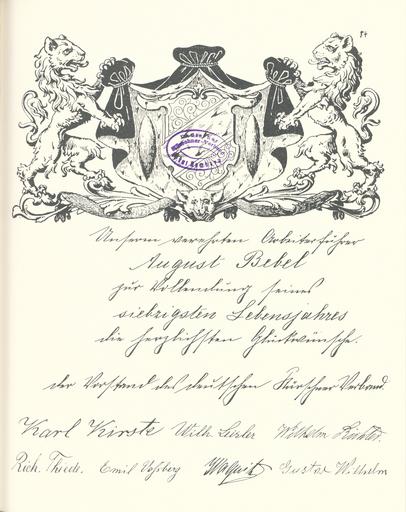 84
Unserm verehrten Arbeiterführer
August Bebel
zur Vollendung seines
siebzigsten Lebensjahres
die herzlichsten Glückwünsche.
der Vorstand des deutschen Kürschner Verband.
Karl Kirste Wilh. Wilhelm
Rich. Thiede. Emil Voßberg Gustav Wilhelm